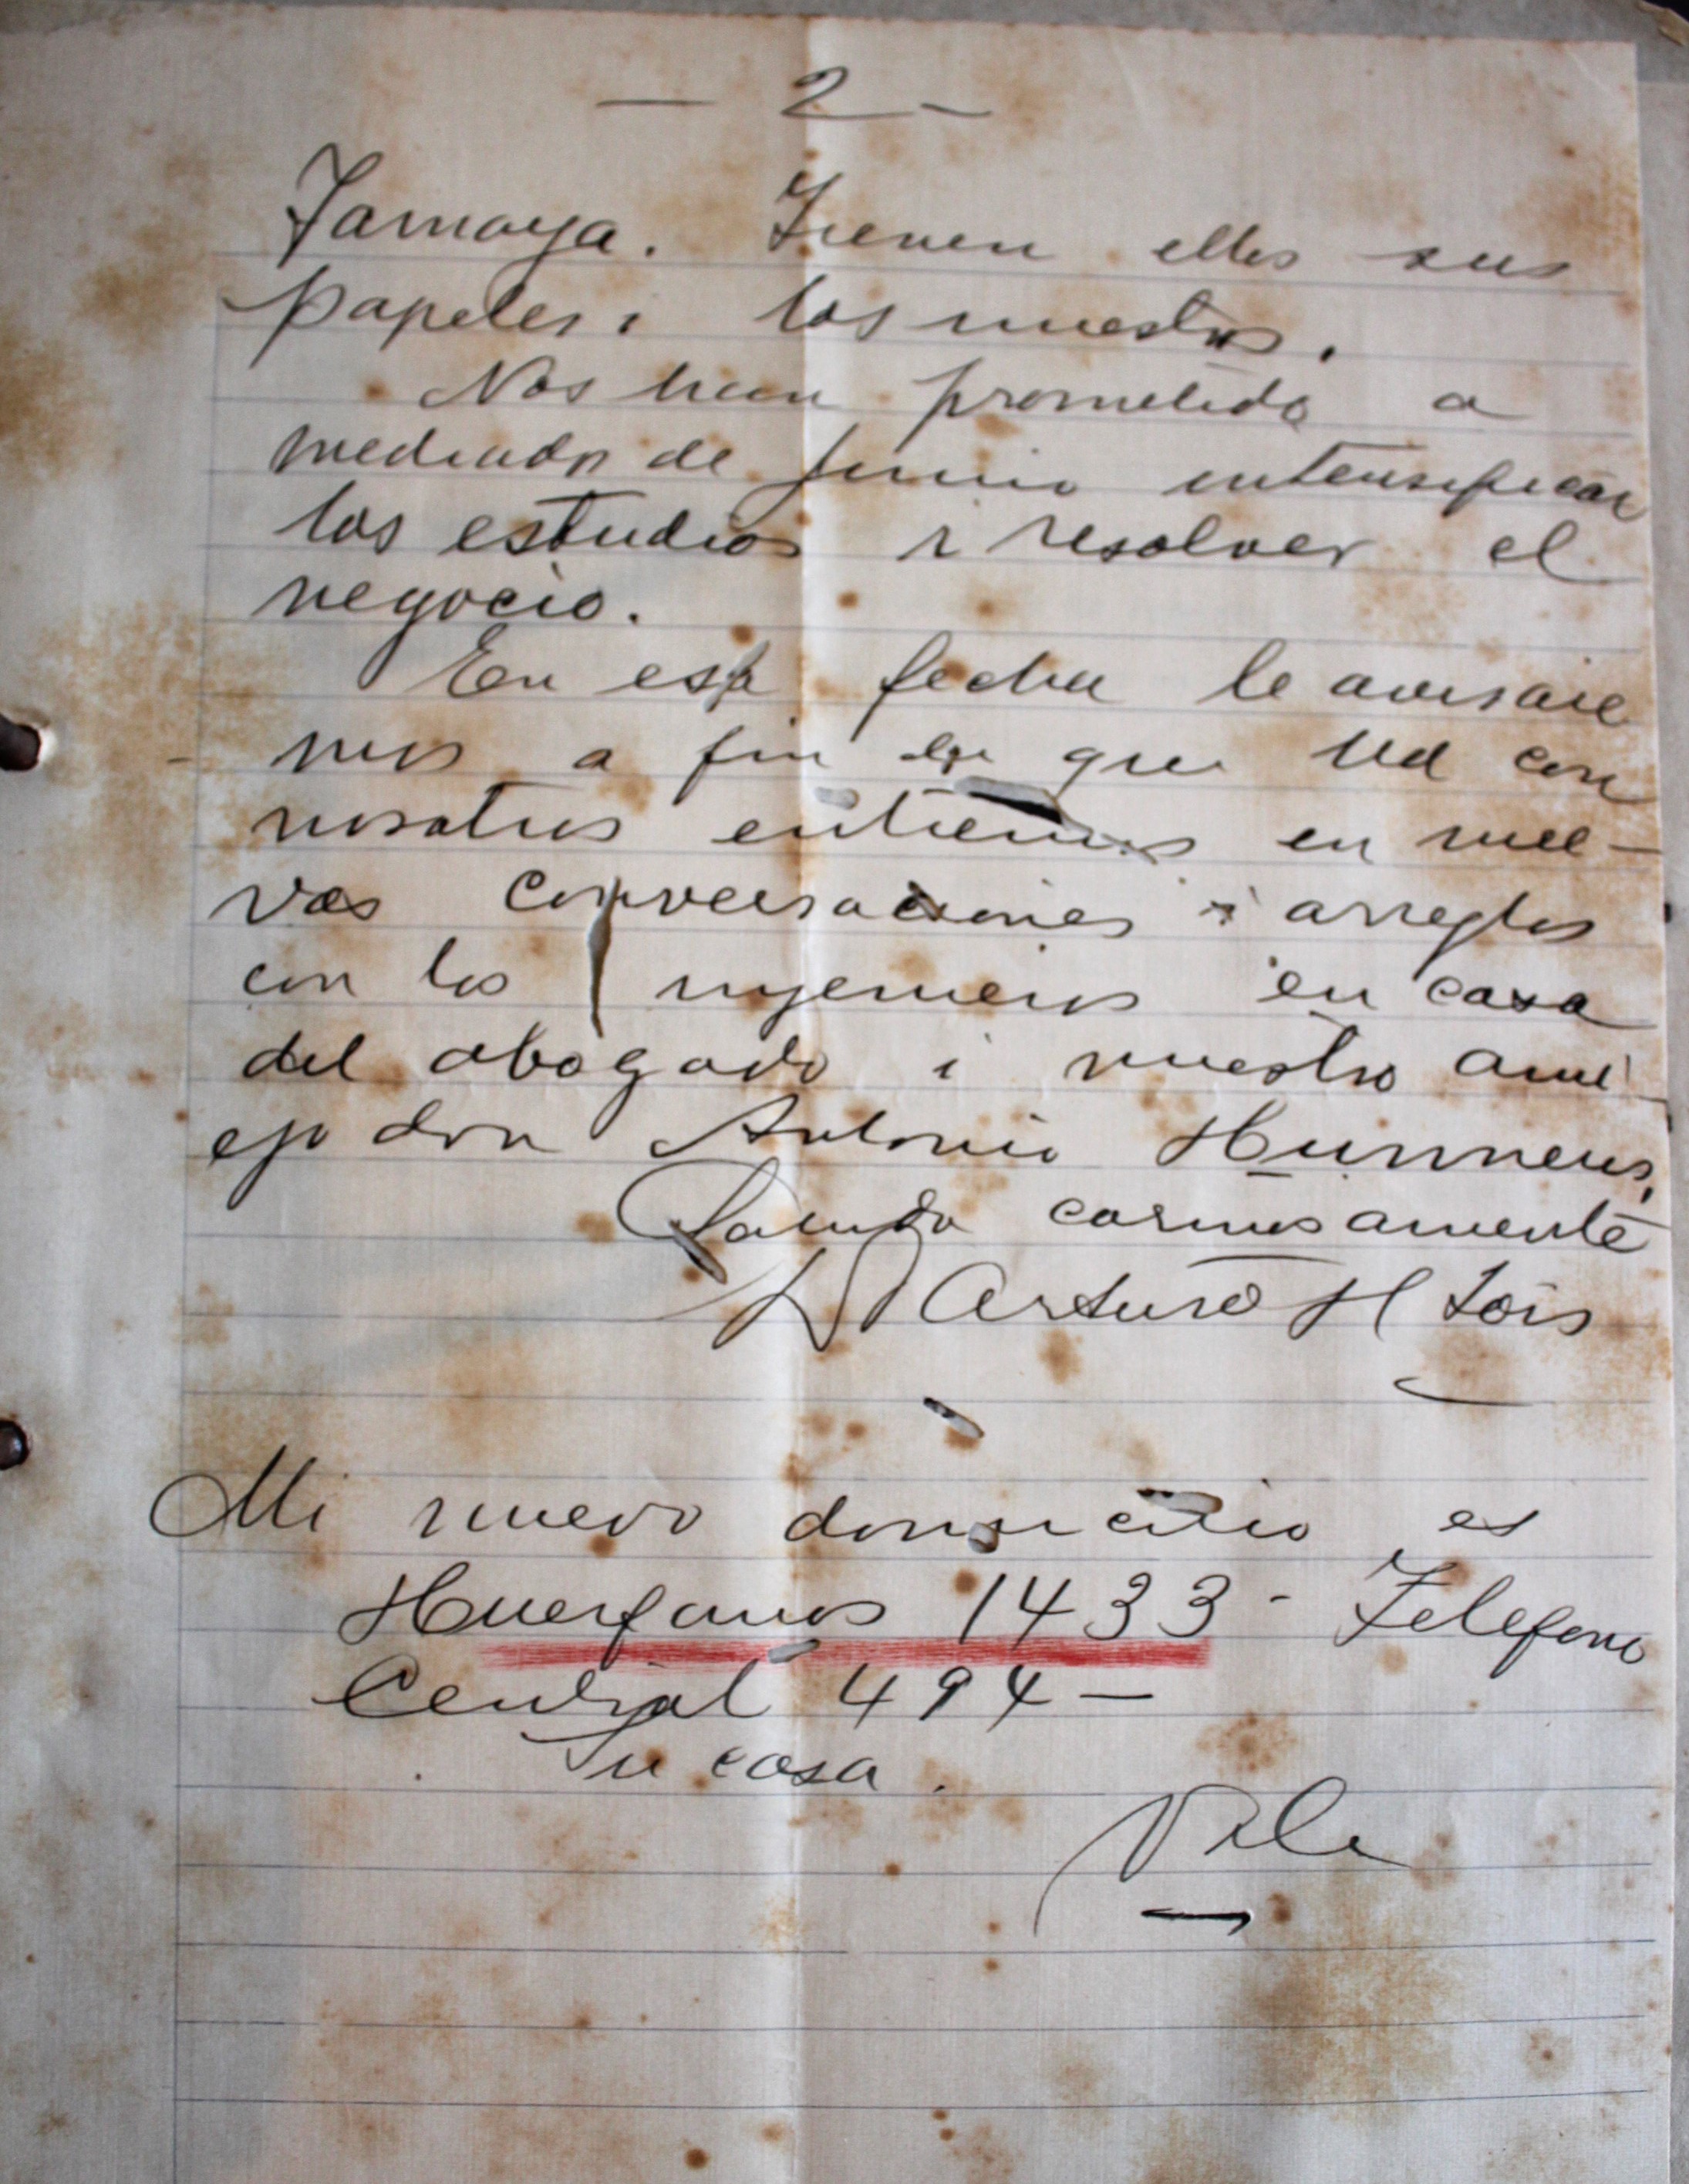 — 2 —
Tamaya. Tienen ellos sus
papeles i los nuestros.
Nos han prometido a
mediados de Junio intensificar
los estudios i resolver el
negocio.
En esa fecha le avisare
mos a fin de que Ud con
nosotros entremos en nue-
vas conversaciones i arreglos
con los ingenieros en casa
del abogado i nuestro ami-
go don Antonio Hunneus.
Saluda cariñosamente
Arturo H Lois
Mi nuevo domicilio es
Huerfanos 1433 - Telefono
Central 494 —
Su casa.
Vale